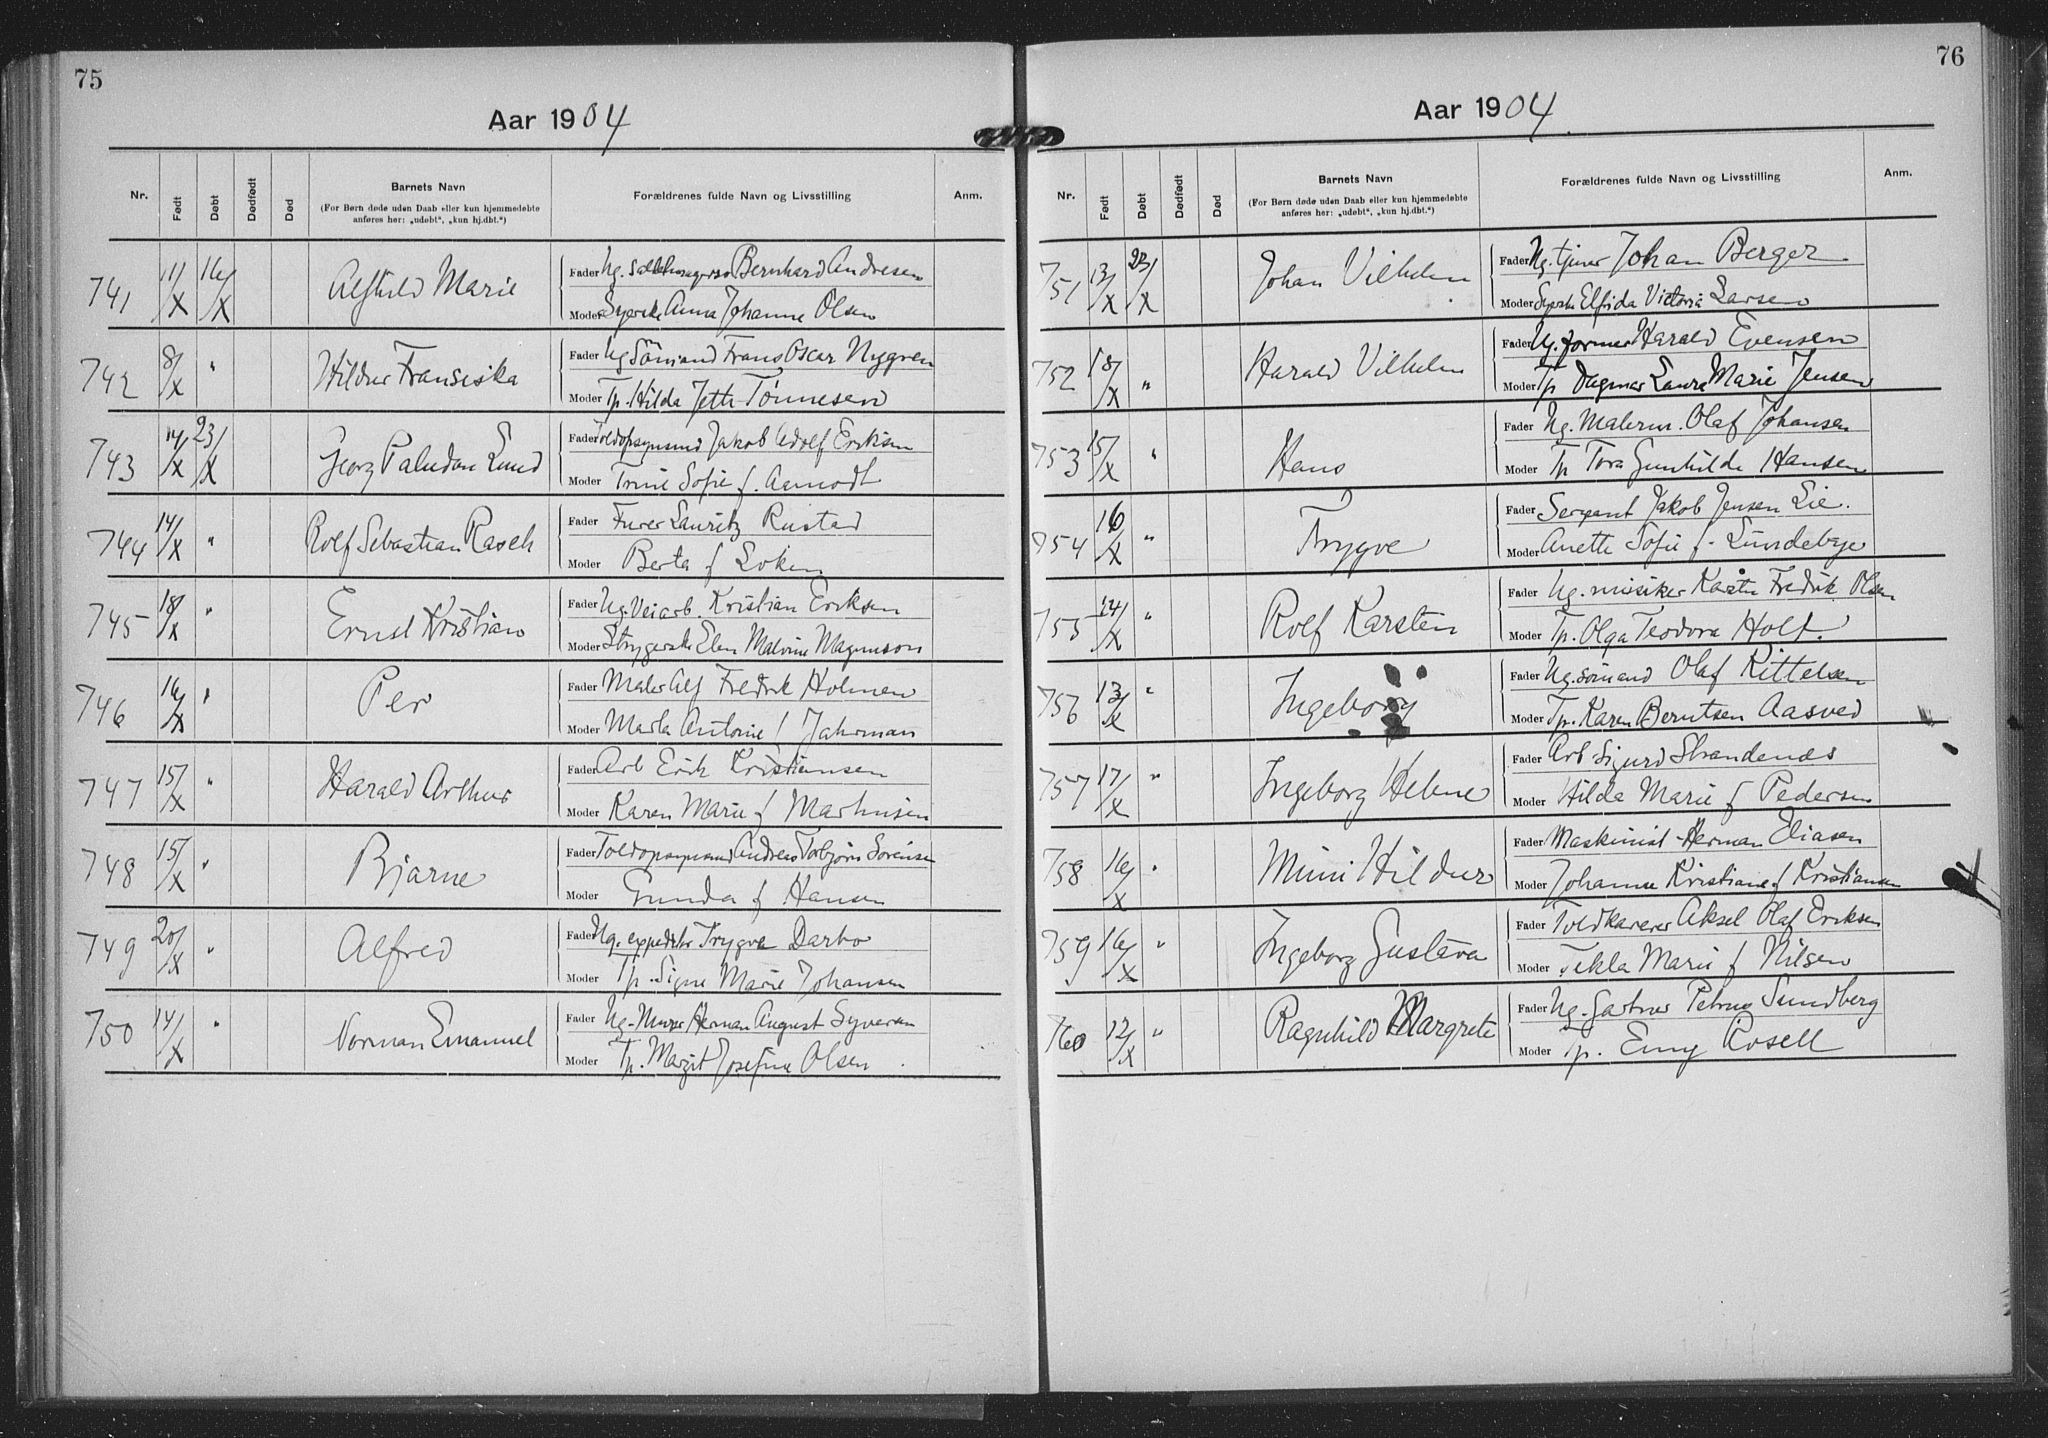 75
Aar 1904
Nr. Født Døbt Dødfødt Død Barnets Navn Forældrenes fulde Navn og Livsstilling Anm.
(For Børn døde uden Daab eller kun hjemmedøbte
anføres her: „udøbt“, „kun hj.dbt.“)
Fader Ug. Bernhard Andresen
741 11/X 16/X Alfhild Marie
Moder Syerske Anna Johanne Olsen
Fader Ug Sömand Frans Oscar Nygren
742 8/X " Hildur Fransiska
Moder Tp. Hilda Jette Tönnesen
Fader Toldopsynsmd Jakob Adolf Eriksen
743 14/X 23/X Georg Paludan Lund
Moder Trine Sofie f. Aamodt
Fader Furer Lauritz Rustad
744 14/X " Rolf Sebastian Rasch
Moder Berta f Loken
Fader Ug. Veiarb. Kristian Eriksen
745 18/X " Ernst Kristian
Moder Strygerske Elen Malvine Magnuson
Fader Maler Alf Fredrik Holmen
746 16/X " Per
Moder Marta Antonie f Jahrman
Fader Arb Erik Kristiansen
747 15/X " Harald Arthur
Moder Karen Marie f Marthinsen
Fader Toldopsynsmd Andreas Torbjörn Sorensen
748 15/X " Bjarne
Moder Gunda f Hansen
Fader Ug. expeditör Trygve Darbo
749 20/X " Alfred
Moder Tp. Signe Marie Johansen
Fader Ug. Murer Herman August Syversen
750 14/X " Norman Emanuel
Moder Tp. Margit Josefine Olsen
76
Aar 1904.
Nr. Født Døbt Dødfødt Død Barnets Navn Forældrenes fulde Navn og Livsstilling Anm.
(For Børn døde uden Daab eller kun hjemmedøbte
anføres her: „udøbt“, „kun hj.dbt.“)
Fader Ug. tjener Johan Berger
751 13/X 23/X Johan Vilhelm
Moder Syerske Elfrida Victoria Larsen
Fader Ug. former Harald Evensen
752 18/X " Harald Vilhelm
Moder Tp Dagmar Laura Marie Jensen
Fader Ug. Malersv. Olaf Johansen
753 15/X " Hans
Moder Tp Tora Gunhilde Hansen
Fader Sergeant Jakob Jensen Lie.
754 16/X " Trygve
Moder Anette Sofie f. Lundebye
Fader Ug. musiker Karsten Fredrik Olsen
755 24/X " Rolf Karsten
Moder Tp. Olga Teodora Holt.
Fader Ug. sömand Olaf Kittelsen
756 13/X " Ingeborg
Moder Tp. Karen Berntsen Aasved
Fader Arb Sigurd Strandenæs
757 17/X " Ingeborg Helene
Moder Hilda Marie f Pedersen
Fader Maskinist Herman Eliasen
758 16/X " Mimi Hildur
Moder Johanne Kristiane f Kristiansen
Fader Toldkarerer Aksel Olaf Eriksen
759 16/X " Ingeborg Gustava
Moder Tekla Marie f Nilsen
Fader Ug. Gartner Petrus Sundberg
760 12/X " Ragnhild Margrete
Moder Tp. Emy Rosell